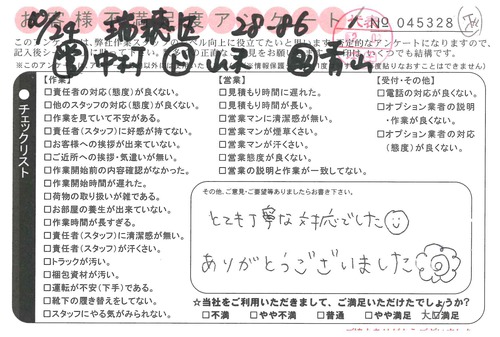 お客様満足度アンケート
No 045328
10/29 瑞穂区 28-86
中村 山本 青山
このアンケートは、弊社作業スタッフのレベル向上に役立てたいと思います。否定的なアンケートになりますので、
チェックリスト
【作業】
□責任者の対応(態度)が良くない。
□他のスタッフの対応(態度)が良くない。
□作業を見ていて不安がある。
□責任者(スタッフ)に好感が持てない。
□お客様への挨拶が出来ていない。
□ご近所への挨拶・気遣いが無い。
□作業開始前の内容確認がなかった。
□作業開始時間が遅れた。
□荷物の取り扱いが雑である。
□お部屋の養生が出来ていない。
□作業時間が長すぎる。
□責任者(スタッフ)に清潔感が無い。
□責任者(スタッフ)が汗くさい。
□トラックが汚い。
□梱包資材が汚い。
□運転が不安(下手)である。
□靴下の履き替えをしてない。
□スタッフにやる気がみられない。
【営業】
□見積もり時間に遅れた。
□見積もり時間が長い。
□営業マンに清潔感が無い。
□営業マンが煙草くさい。
□営業マンが汗くさい。
□営業態度が良くない。
□営業の説明と作業が一致してない。
【受付・その他】
□電話の対応が良くない。
□オプション業者の説明
・作業が良くない。
□オプション業者の対応
(態度)が良くない。
その他、ご意見・ご要望等ありましたらお書き下さい。
とても丁寧な対応でした
ありがとうございました
☆当社をご利用いただきまして、ご満足いただけたでしょうか?
□不満 □やや不満 □普通 □やや満足 大満足